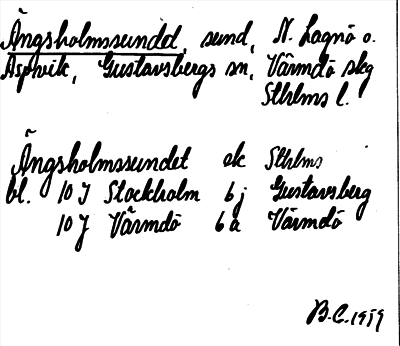 Ängsholmssundet, sund, N. Lagnö o.
Aspvik, Gustavsbergs sn, Värmdö skg
Sthlms l.
Ängsholmssundet ek Sthlms
bl. 10 I Stockholm 6 j Gustavsberg
10 J Värmdö 6 a Värmdö
B.C. 1959